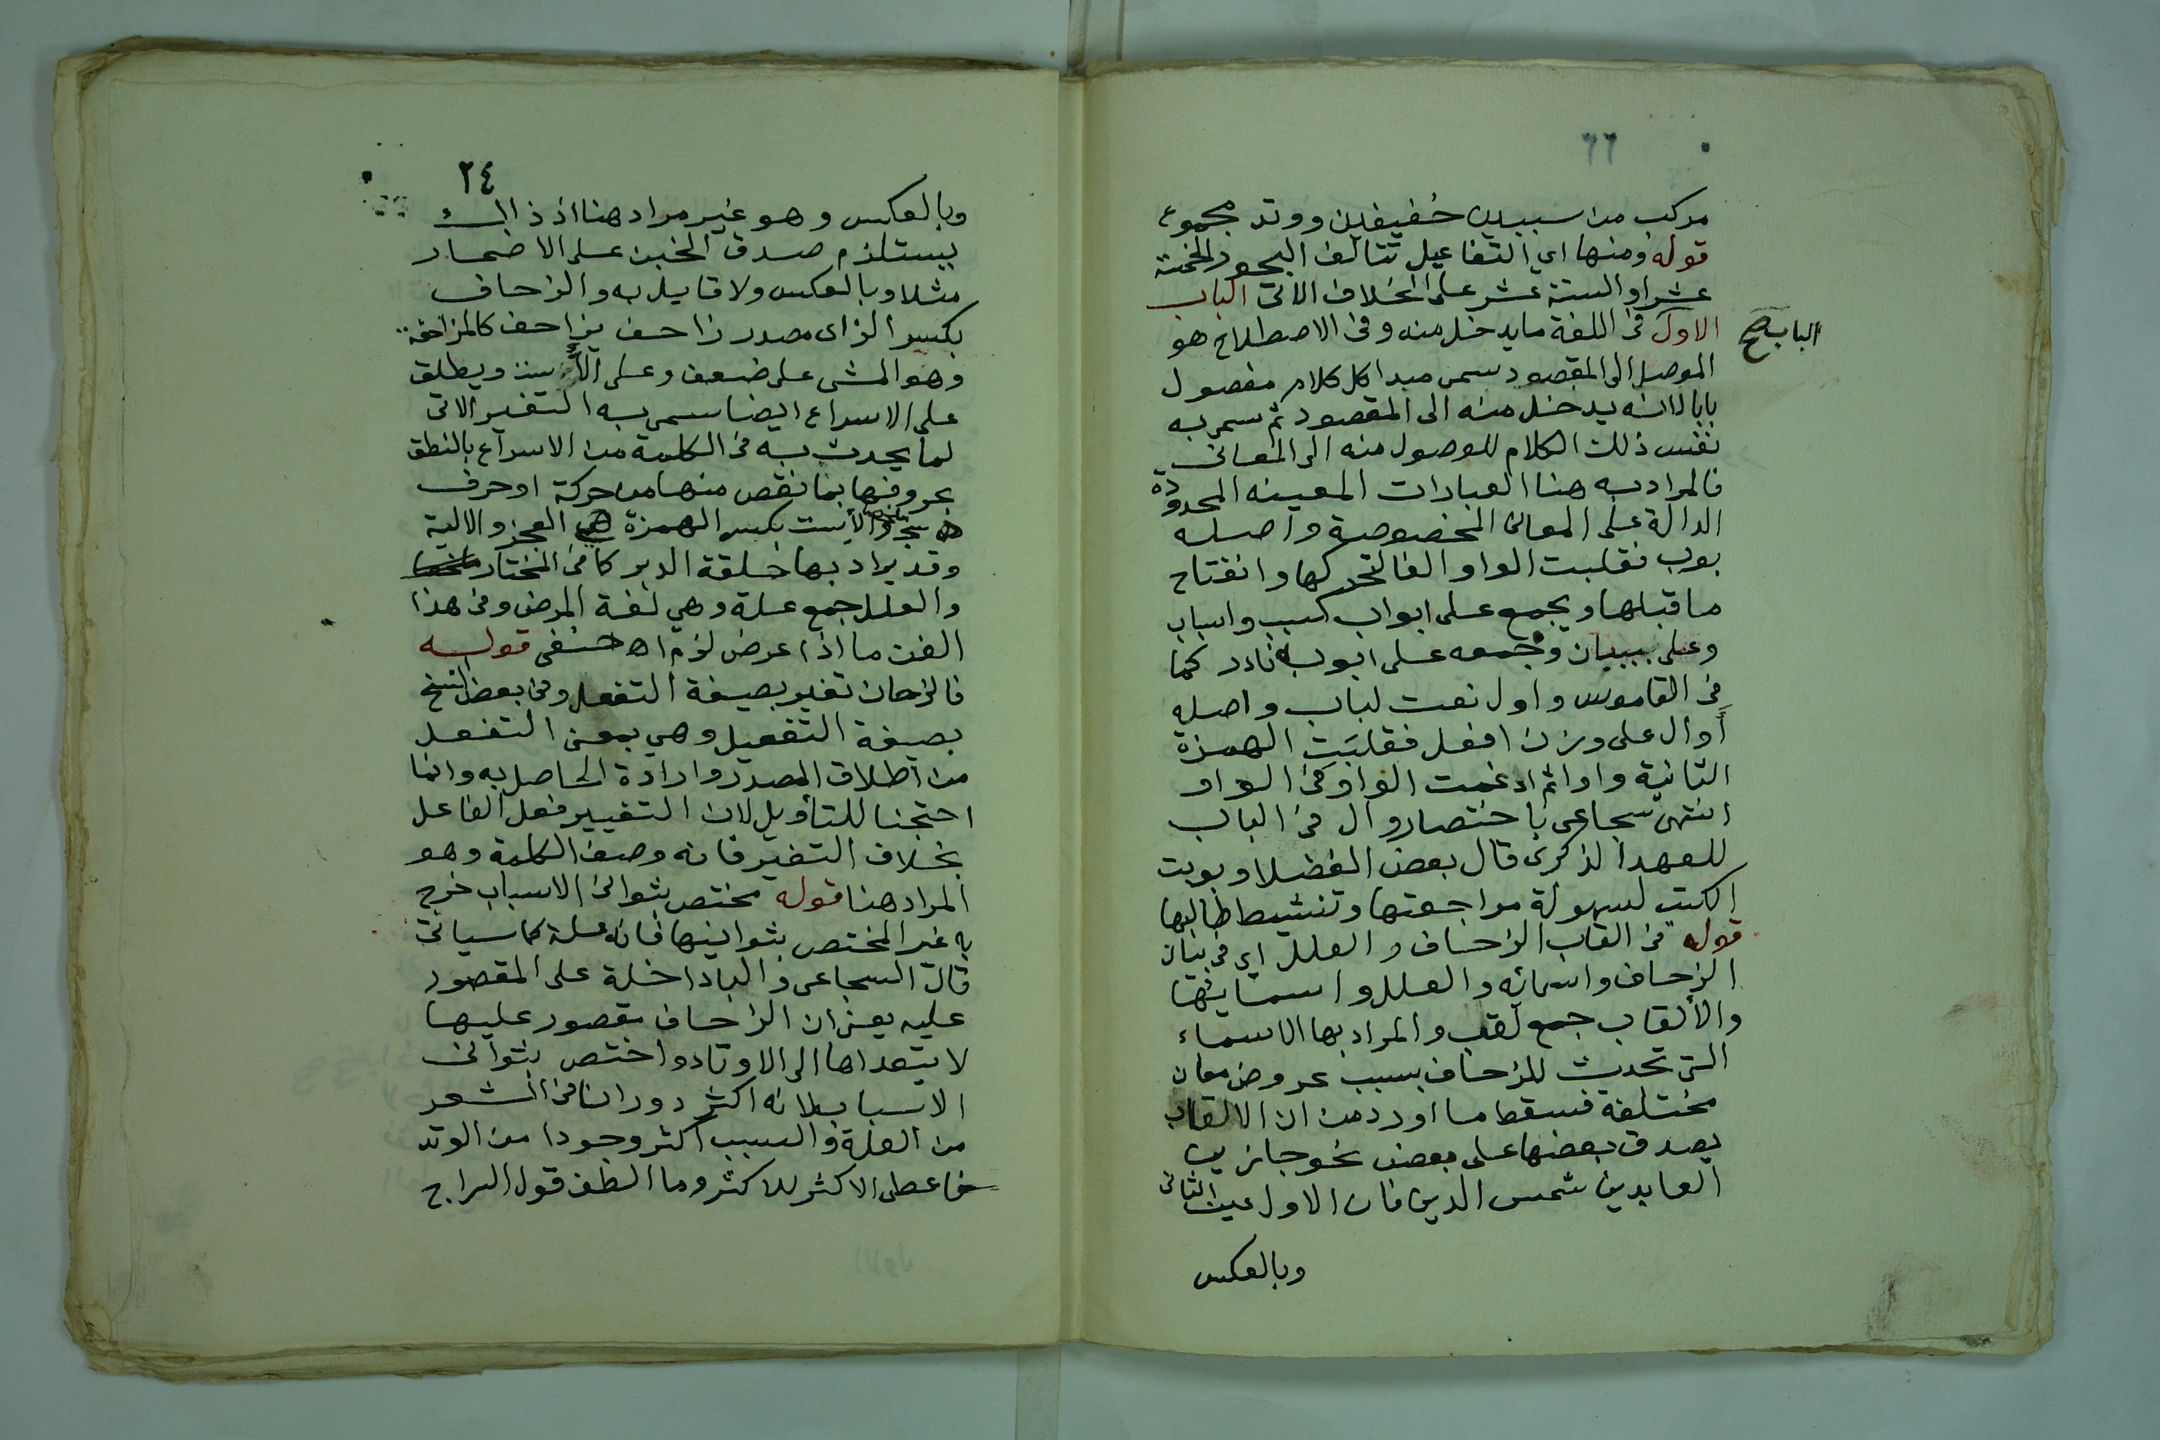 مركب من سببين خفيفين ووتد مجموع
قوله ومنها اي التفاعيل تتالف البحور الخمسة
عشر او الستة عشر على الخلاف الاتى الباب
الاول فى اللغة ما يدخل منه وفى الاصطلاح هو
الباب
الموصل الى المقصود سمى مبدا كل كلام مفصول
بابا لانه يدخل منه الى المقصود ثم سمى به
نفس ذلك الكلام للوصول منه الى المعانى
فالمراد به هنا العبارات المعينه المحدودة
الدالة على المعانى المخصوصة واصله
بوب فقلبت الواو الفا لتحركها وانفتاح
ما قبلها ويجمع على ابواب كسبب واسباب
وعلى بيبان وجمعه على ابوبة نادر كما
فى القاموس واول نعت لباب واصله
أوال على وزن افعل فقلبت الهمزة
الثانية واوا ثم ادغمت الواو فى الواو
انتهى سجاعى باختصار وال فى الباب
للعهد الذكرى قال بعض الفضلا وبوبت
الكتب لسهولة مراجعتها وتنشيط طالبها
قوله فى القاب الزحاف والعلل اى فى بيان
الزحاف واسمائه والعلل واسمايها
والألقاب جمع لقب والمراد بها الاسماء
التى تحدث للزحاف بسبب عروض معان
مختلفة فسقط ما اورد من ان الالقاب
يصدق بعضها على بعض نحو جا زين
العابدين شمس الدين فان الاول عين الثانى
وبالعكس
٢٤
وبالعكس وهو غير مراد هنا اذ ذالك
يستلزم صدق الخبن على الاضمار
مثلا وبالعكس ولا قايل به والزحاف
بكسر الزاى مصدر زاحف يزاحف كالمزاحفة
وهو المشى على ضعف وعلى ويطلق
على الاسراع ايضا سمى به التغير الاتى
لما يحدث به فى الكلمة من الاسراع بالنطق
بحروفها بما نقص منها من حركة او حرف
الأيست بكسر الهمزة العجز والالية
وقد يراد بها حلقة الدبر كما فى المختار
والعلل جمع علة وهي لغة المرض وفى هذا
الفن ما اذا عرض لزم اه حنفى قوله
فالزحاف تغير بصيغة التفعل وفى بعض النسخ
بصيغة التفعيل وهي بمعنى التفعل
من اطلاق المصدر وارادة الحاصل به وانما
احتجنا للتأويل لان التغيير فعل الفاعل
بخلاف التغير فانه وصف الكلمة وهو
المراد هنا قوله مختص بثوانى الاسباب خرج
به غير المختص بثوانيها فانه علة كما سياتى
قال السجاعى والبا داخلة على المقصور
عليه يعنى ان الزحاف مقصور عليها
لا يتعداها الى الاوتاد واختص بثوانى
الاسباب لانه اكثر دورانا فى الشعر
من العلة والسبب اكثر وجودا من الوتد
فاعطى الاكثر للاكثر وما الطف قول السراج